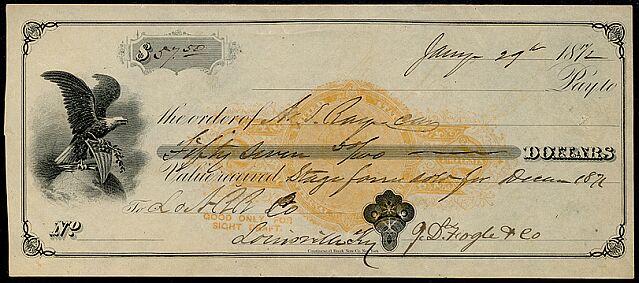 $ 57.50
Jany 29th 1872
Pay to
the order of
Fifty Seven 50/100 DOLLARS
Value received Stage fare 1871
To L & N RR Co
GOOD ONLY FOR
SIGHT DRAFT.
No
Louisville Ky
J. D. Fogle & Co
Continental Bank Note Co. New York